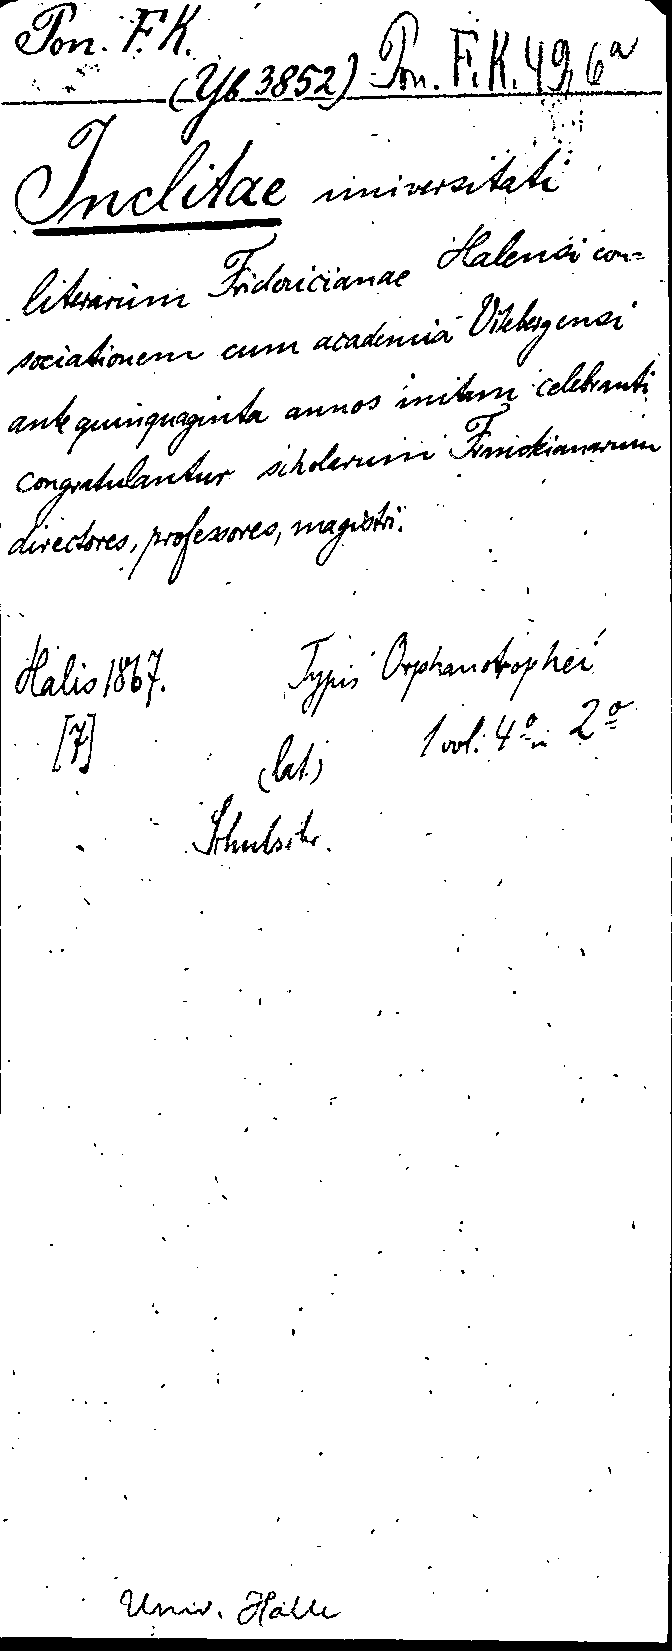 Pon. F.K.
(Yb 3852) Pon. F.K. 49, 6a
Inclitae universitati
literarum Fridericianae Halensi con=
sociationem cum academia Vitebergensi
ante quinquaginta annos initam celebranti
congratulantur scholarum Franckianarum
directores, professores, magistri.
Halis 1867. Typis Orphanotrophei
[7] 1 vol. 4º in 2º
(lat.)
Schulschr.
Univ. Halle